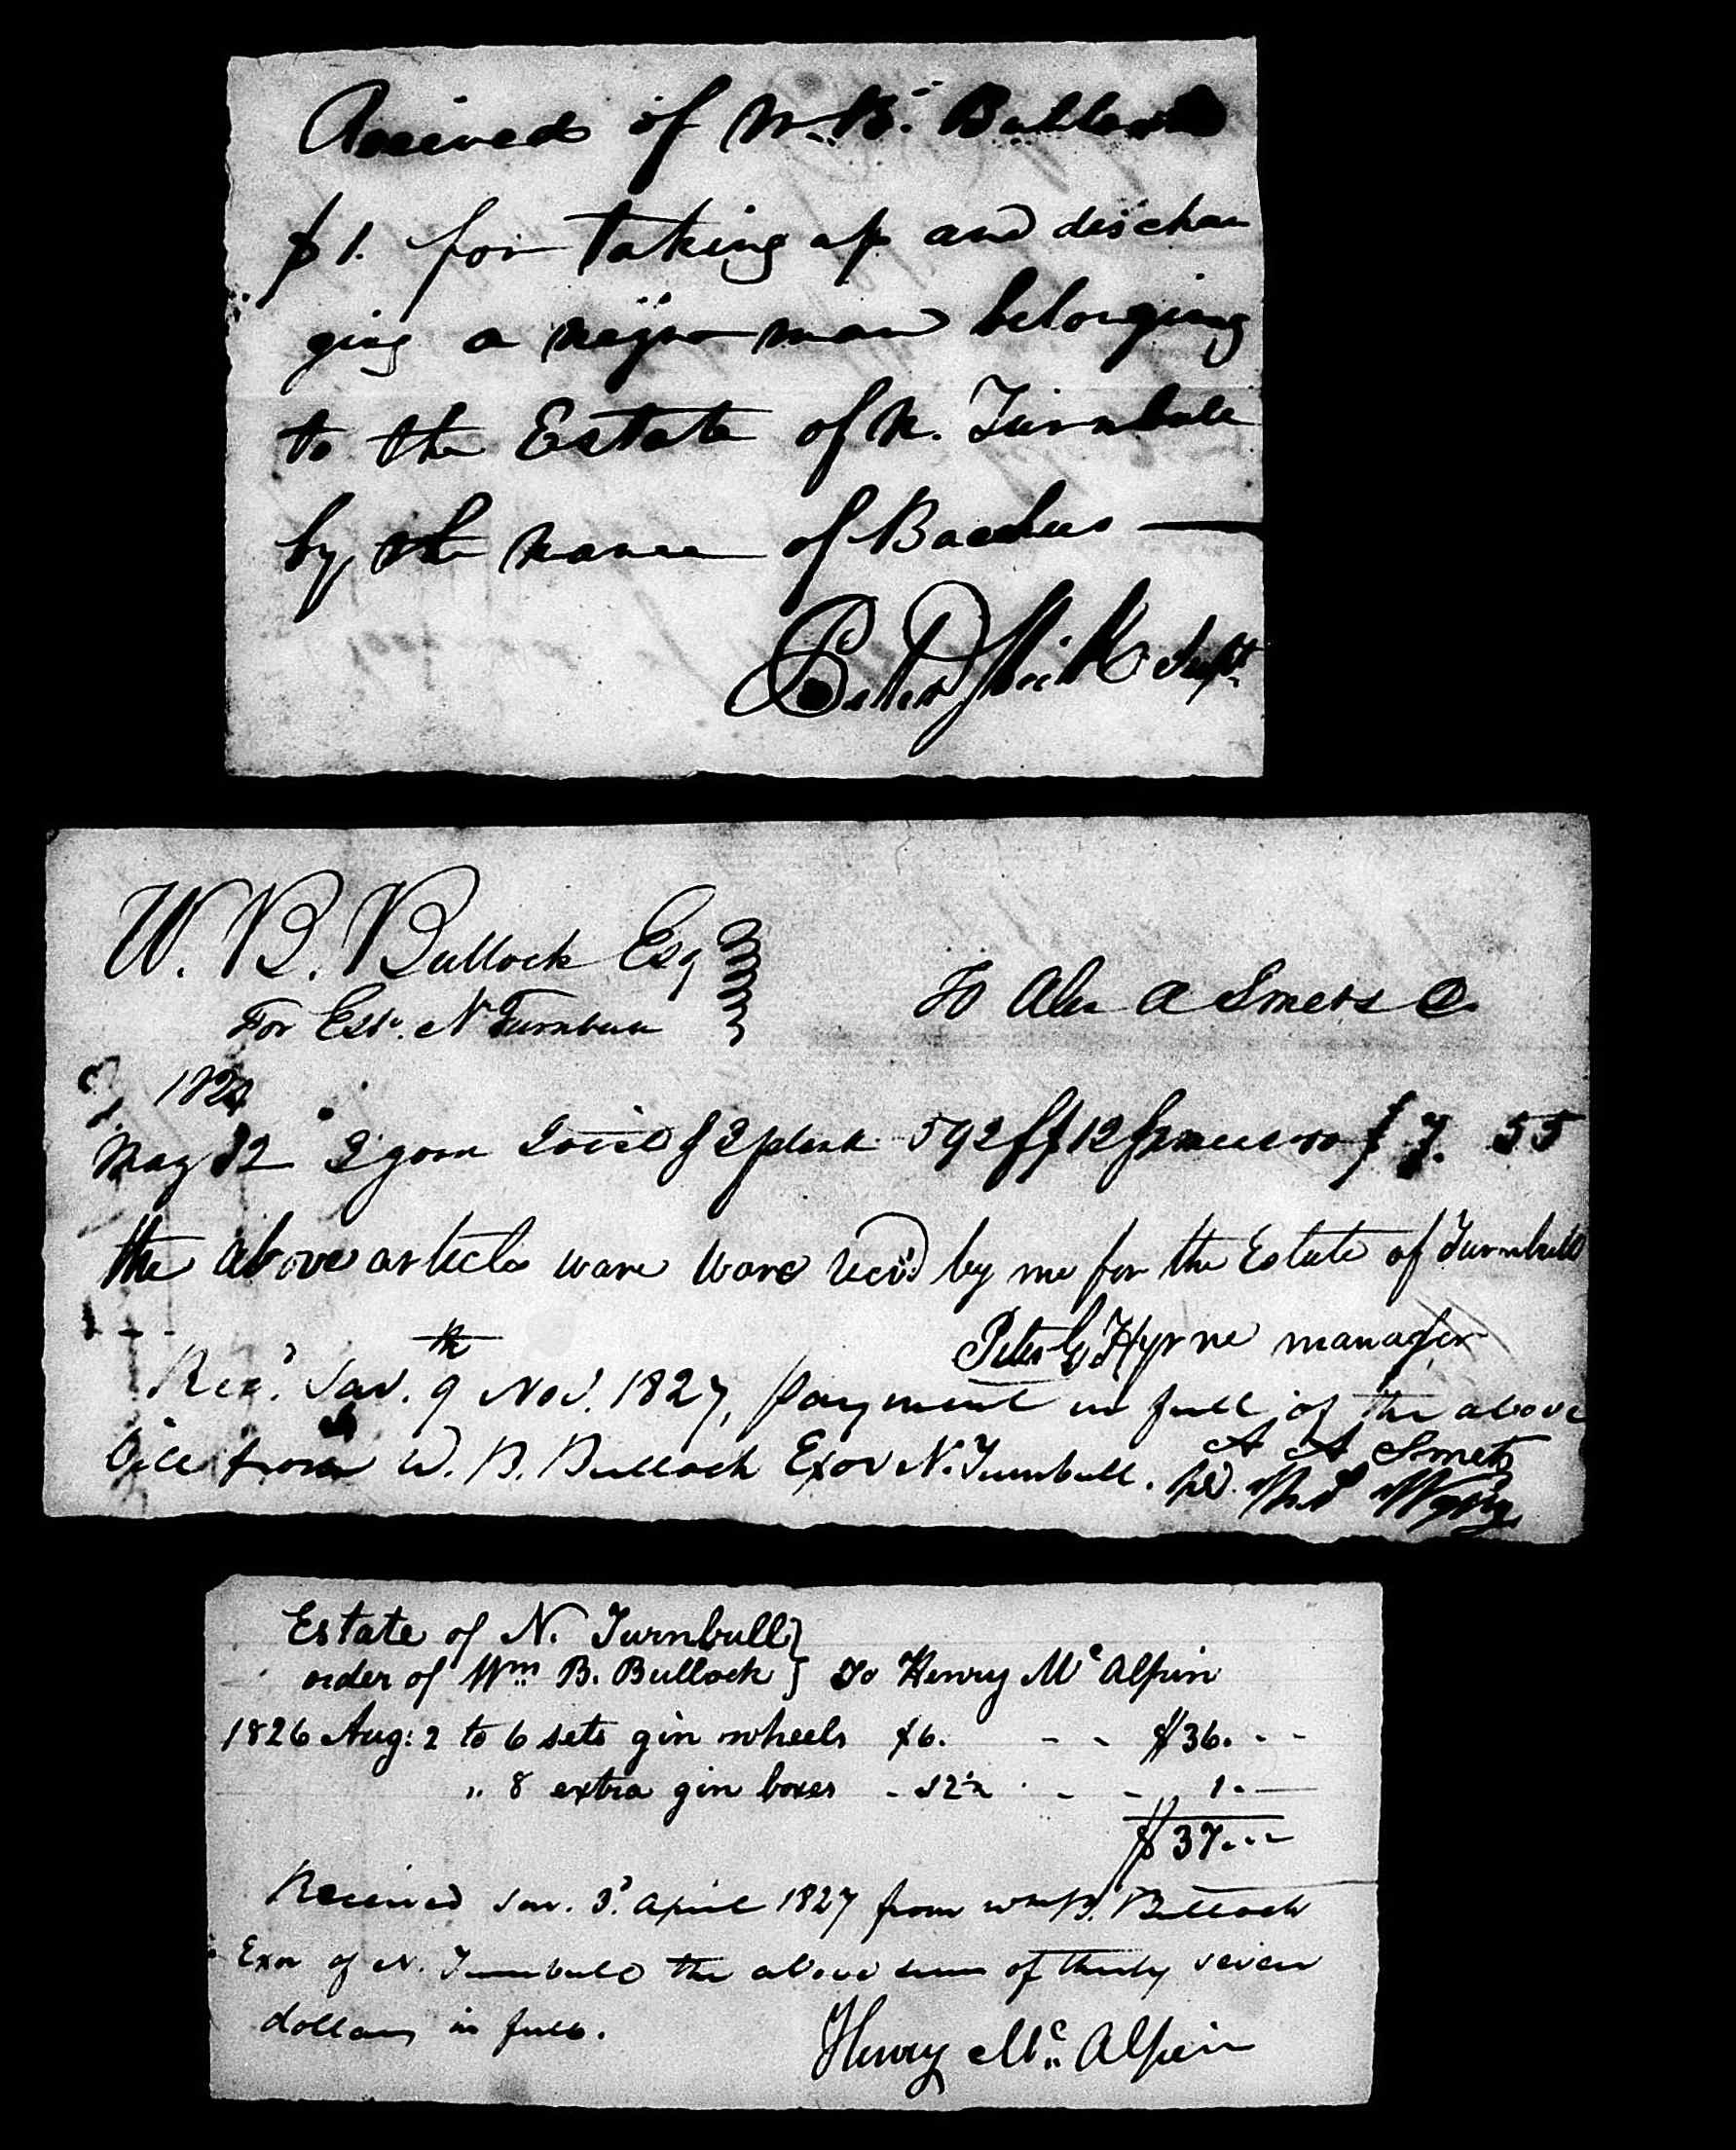 Received of W. B. Bullock
$1. for taking up and dischar
ging a negro man belonging
to the Estate of N. Turnbull
by the name of Bacchus
Peter Supt.
W. B. Bullock Esq
For Est. N Turnbull
To Alex A Smets Dr.
1827
May 12 2 plank 592 ff 12 $7. 55
the above articles ware ware recd by me for the Estate of Turnbull
Peter G Hyrne manager
Recd. Sav. 9th Nov. 1827, payment in full of the above
bill from W. B. Bullock Exor N. Turnbull.
A A Smets
Estate of N. Turnbull
order of Wm B. Bullock } To Henry Mc Alpin
1826 Aug: 2 to 6 sets gin wheels $6. - - $36. - -
" 8 extra gin boxes - 12½ - - 1. —
$37. - -
Received Sav. 3d April 1827 from Wm B. Bullock
Exor of N. Turnbull the above sum of thirty seven
dollars in full.
Henry Mc Alpin